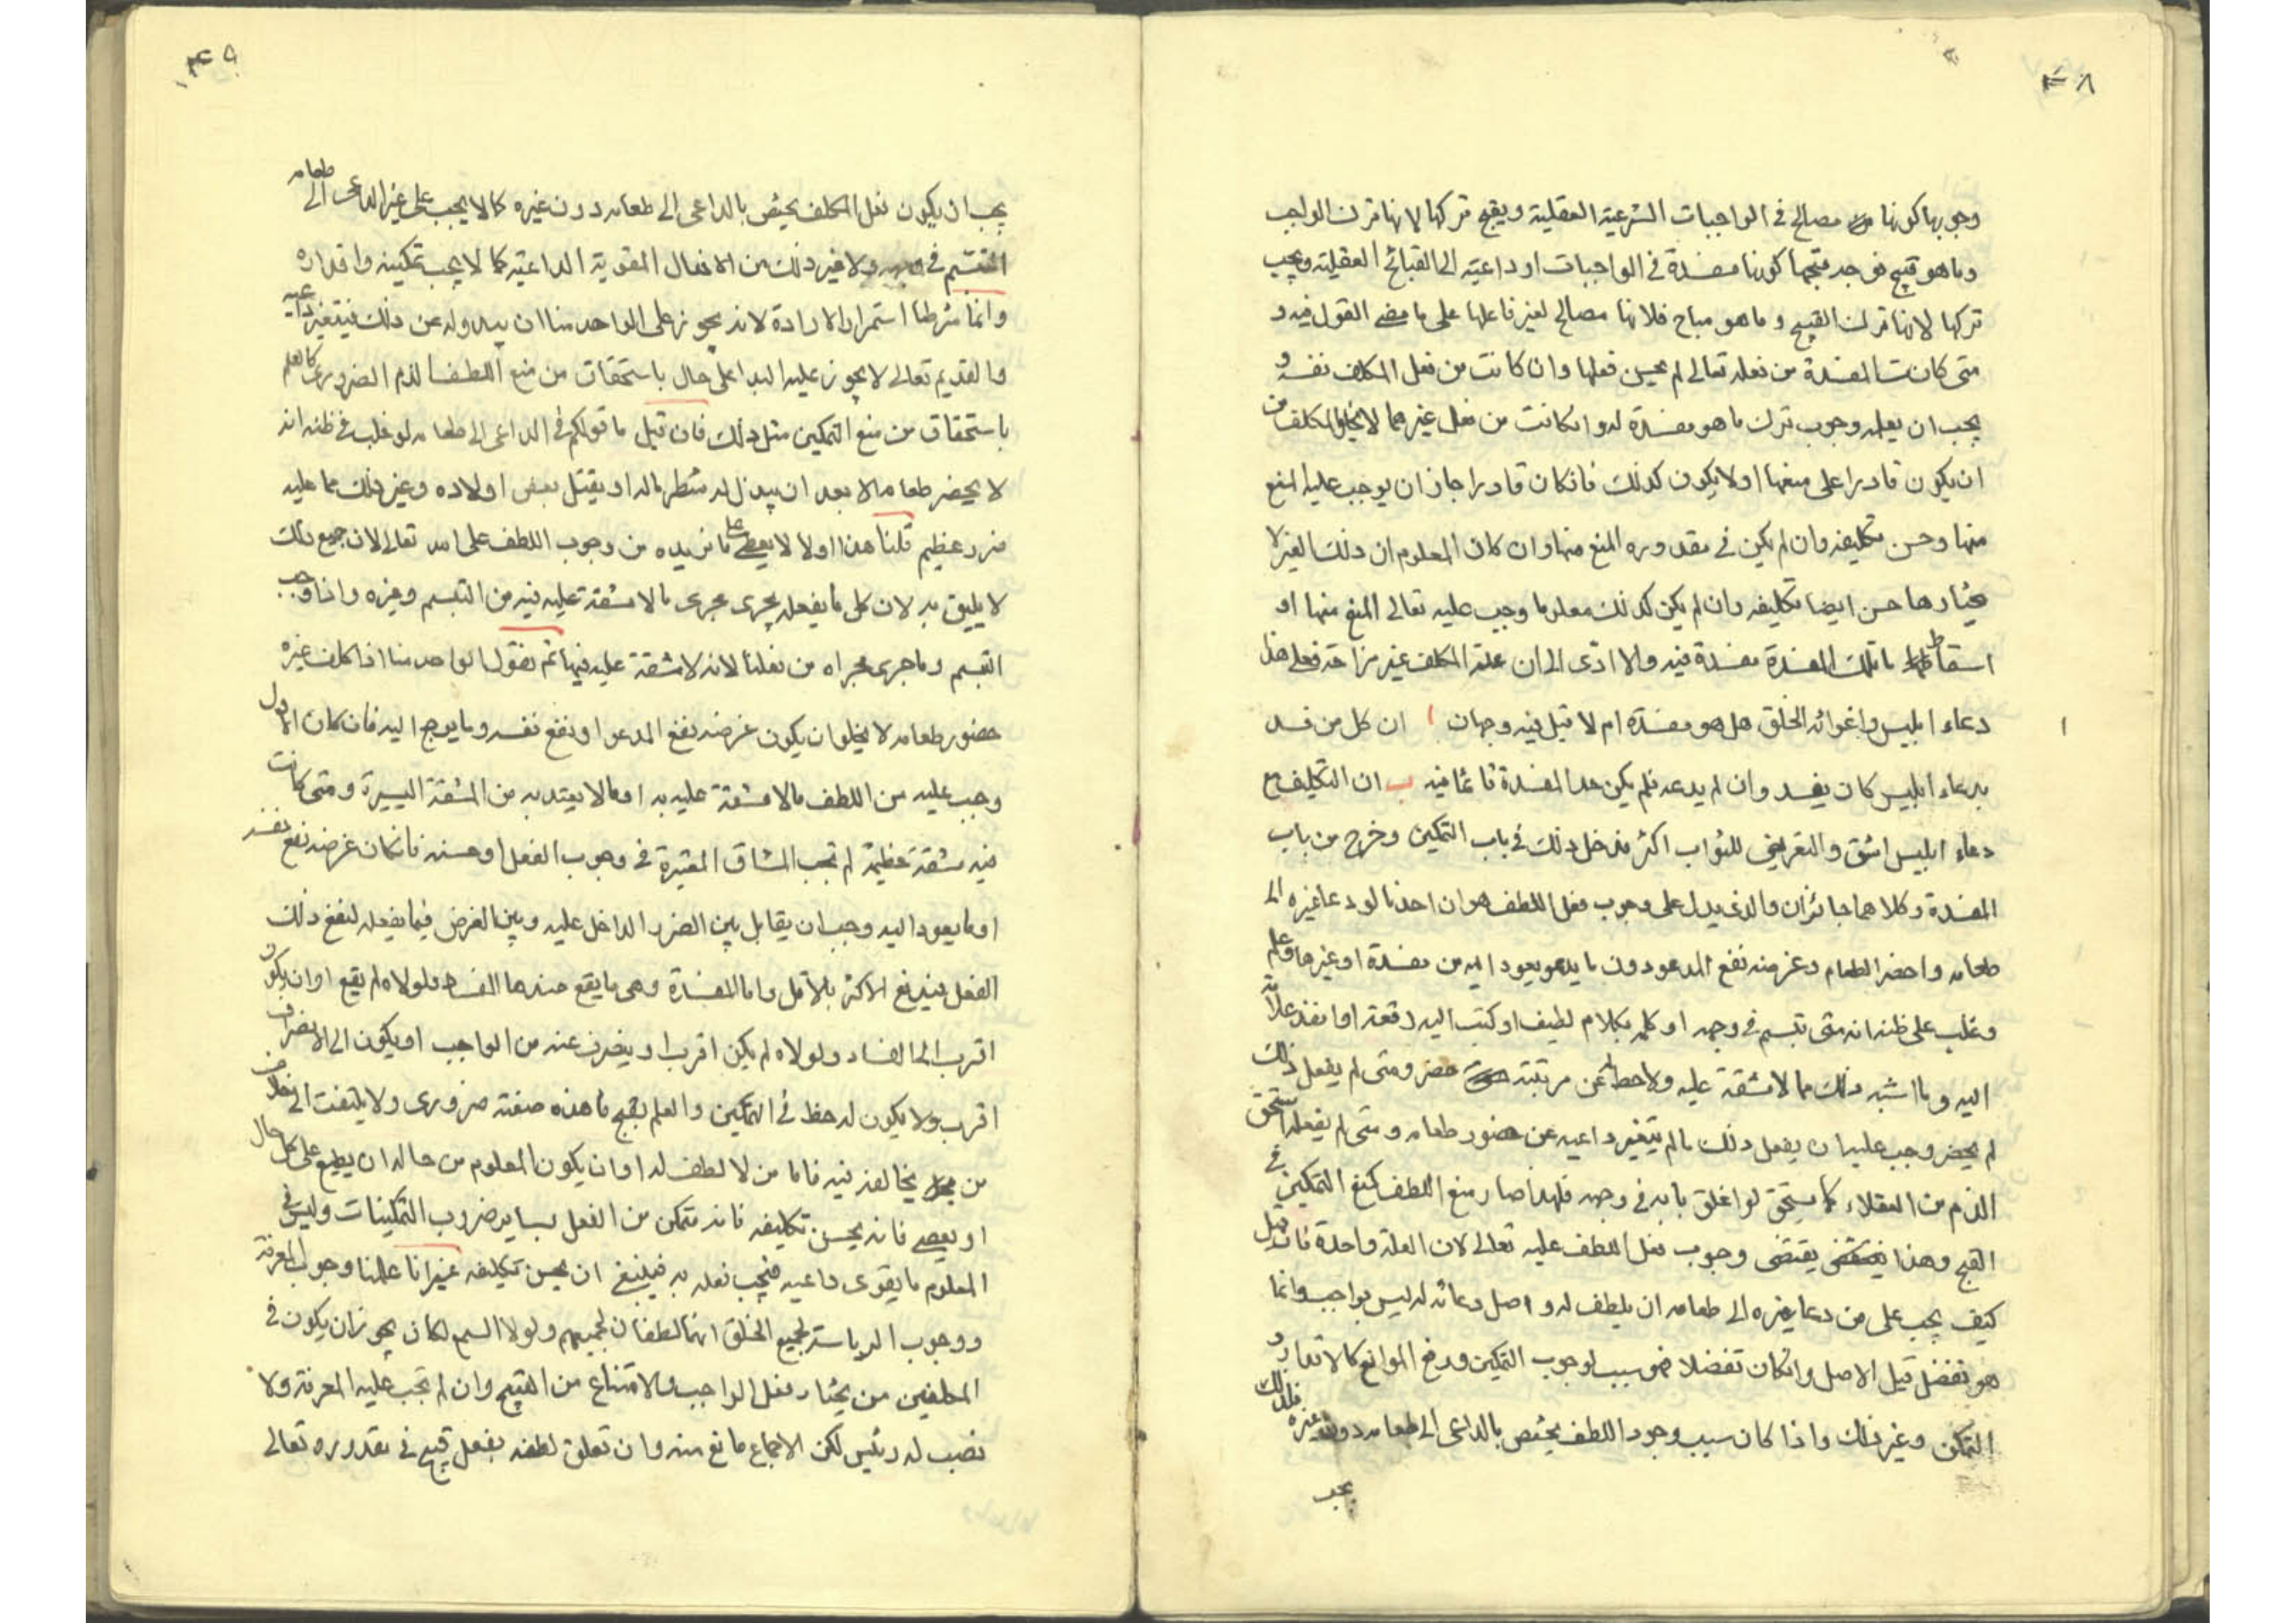 ۴۸
وجوبها كونها مصالح في الواجبات الشرعية العقلية ويقبح تركها لانها ترك الواجب
وما هو قبيح فوجه قبحها كونها مفسدة في الواجبات او داعية الى القبائح العقلية ويجب
تركها لانها ترك القبيح وما هو مباح فلانها مصالح لغير فاعلها على ما مضى القول فيه و
متى كانت المفسدة من فعله تعالى لم يحسن فعلها وان كانت من فعل المكلف نفسه و
يجب ان يعلمه وجوب ترك ما هو مفسدة له وانكانت من فعل غيرهما لا يخلوا المكلف من
ان يكون قادرا على منعها او لا يكون كذلك فانكان قادرا جاز ان يوجب عليه المنع
منها وحسن تكليفه وان لم يكن في مقدوره المنع منها وان كان المعلوم ان ذلك الغير لا
يختارها حسن ايضا تكليفه وان لم يكن كذلك معلوما وجب عليه تعالى المنع منها او
اسقاط ما تلك المفسدة مفسدة فيه والا ادى الى ان علة المكلف غير مزاحة فعلى هذا
دعاء ابليس واغوائه الخلق هل هو مفسدة ام لا قيل فيه وجهان ا ان كل من فسد
بدعاء ابليس كان يفسد وان لم يدعه فلم يكن حد المفسدة قائما فيه ب ان التكليف مع
دعاء ابليس اشق والتعريض للثواب اكثر فدخل ذلك في باب التمكين وخرج من باب
المفسدة وكلاهما جائزان والذي يدل على وجوب فعل اللطف هو ان احدنا لو دعا غيره الى
طعامه واحضر الطعام وغرضه نفع المدعو دون ما يعود اليه من مفسدة او غيرها وعلم
وغلب على ظنه انه متى تبسم في وجهه او كلمه بكلام لطيف او كتب اليه رقعة او انفذ غلامه
اليه وما اشبه ذلك مما لا مشقة عليه ولا حط له عن مرتبته حضر ومتى لم يفعل ذلك
لم يحضر وجب عليه ان يفعل ذلك ما لم يتغير داعيه عن حضور طعامه ومتى لم يفعله استحق
الذم من العقلاء كما يستحق لو اغلق بابه في وجهه فلهذا صار منع اللطف كمنع التمكين في
القبح وهذا يقتضى وجوب فعل اللطف عليه تعالى لان العلة واحدة فان قيل
كيف يجب على من دعا غيره الى طعامه ان يلطف له واصل دعائه له ليس بواجب وانما
هو تفضل قيل الاصل وانكان تفضلا فهو سبب لوجوب التمكين ورفع الموانع كالاقدار و
التمكن وغير ذلك واذا كان سبب وجود اللطف يختص بالداعى الى طعامه دون غيره فلذلك
يجب
۴۹
يجب ان يكون فعل المكلف يختص بالداعى الى طعامه دون غيره كما لا يجب على غير الداعى الى طعامه
التبسم في وجهه ولا غير ذلك من الافعال المقوية الداعية كما لا يجب تمكينه واقداره
وانما شرطنا استمرار الارادة لانه يجوز على الواحد منا ان يبدو له عن ذلك فيتغير داعيه
والقديم تعالى لا يجوز عليه البدا على حال باستحقاق من منع اللطف الذم الضروري كالعلم
باستحقاق من منع التمكين مثل ذلك فان قيل ما قولكم في الداعى الى طعامه لو غلب في ظنه انه
لا يحضر طعامه الا بعد ان يبذل له شطر ماله او يقتل بعض اولاده وغير ذلك مما عليه
ضرر عظيم قلنا هذا اولا لا يعصى على ما نريده من وجوب اللطف على الله تعالى لان جميع ذلك
لا يليق به لان كل ما يفعله يجرى مجرى ما لا مشقة عليه فيه من التبسم وغيره وانما وجب
التبسم وما جرى مجراه من فعلنا لانه لا مشقة عليه فيها ثم نقول الواحد منا اذا كلف غيره
حضور طعامه لا يخلو ان يكون غرضه نفع المدعو او نفع نفسه وما يرجع اليه فان كان الاول
وجب عليه من اللطف ما لا مشقة عليه به او ما لا يعتد به من المشقة اليسيرة ومتى كانت
فيه مشقة عظيمة لم تجب المشاق المعتبرة في وجوب الفعل او حسنه فانكان غرضه نفع نفسه
او ما يعود اليه وجب ان يقابل بين الضرر الداخل عليه وبين الغرض فيما يفعله لنفع ذلك
الفعل فيدفع الاكثر بالاقل واما المفسدة وهى ما يقع عندها الفساد ولولاه لم يقع او ان يكون
اقرب الى الفساد ولولاه لم يكن اقرب او ينصرف عنده من الواجب او يكون الى الانصراف
اقرب ولا يكون له حظ في التمكين والعلم بقبح ما هذه صفته ضرورى ولا يلتفت الى خلاف
من يخالف فيه فاما من لا لطف له او ان يكون المعلوم من حاله ان يطيع على كل حال
او يعصى فانه يحسن تكليفه فانه متمكن من الفعل بساير ضروب التمكينات وليس في
المعلوم ما يقوى داعيه فيجب فعله به فينبغى ان يحسن تكليفه غير انا علمنا وجوب المعرفة
ووجوب الرياسة لجميع الخلق انهما لطفان لجميعهم ولولا السمع لكان يجوز ان يكون في
المكلفين من يختار فعل الواجب والامتناع من القبيح وان لم تجب عليه المعرفة ولا
نصب له رئيس لكن الاجماع مانع منه وان تعلق لطفه بفعل قبيح في مقدوره تعالى